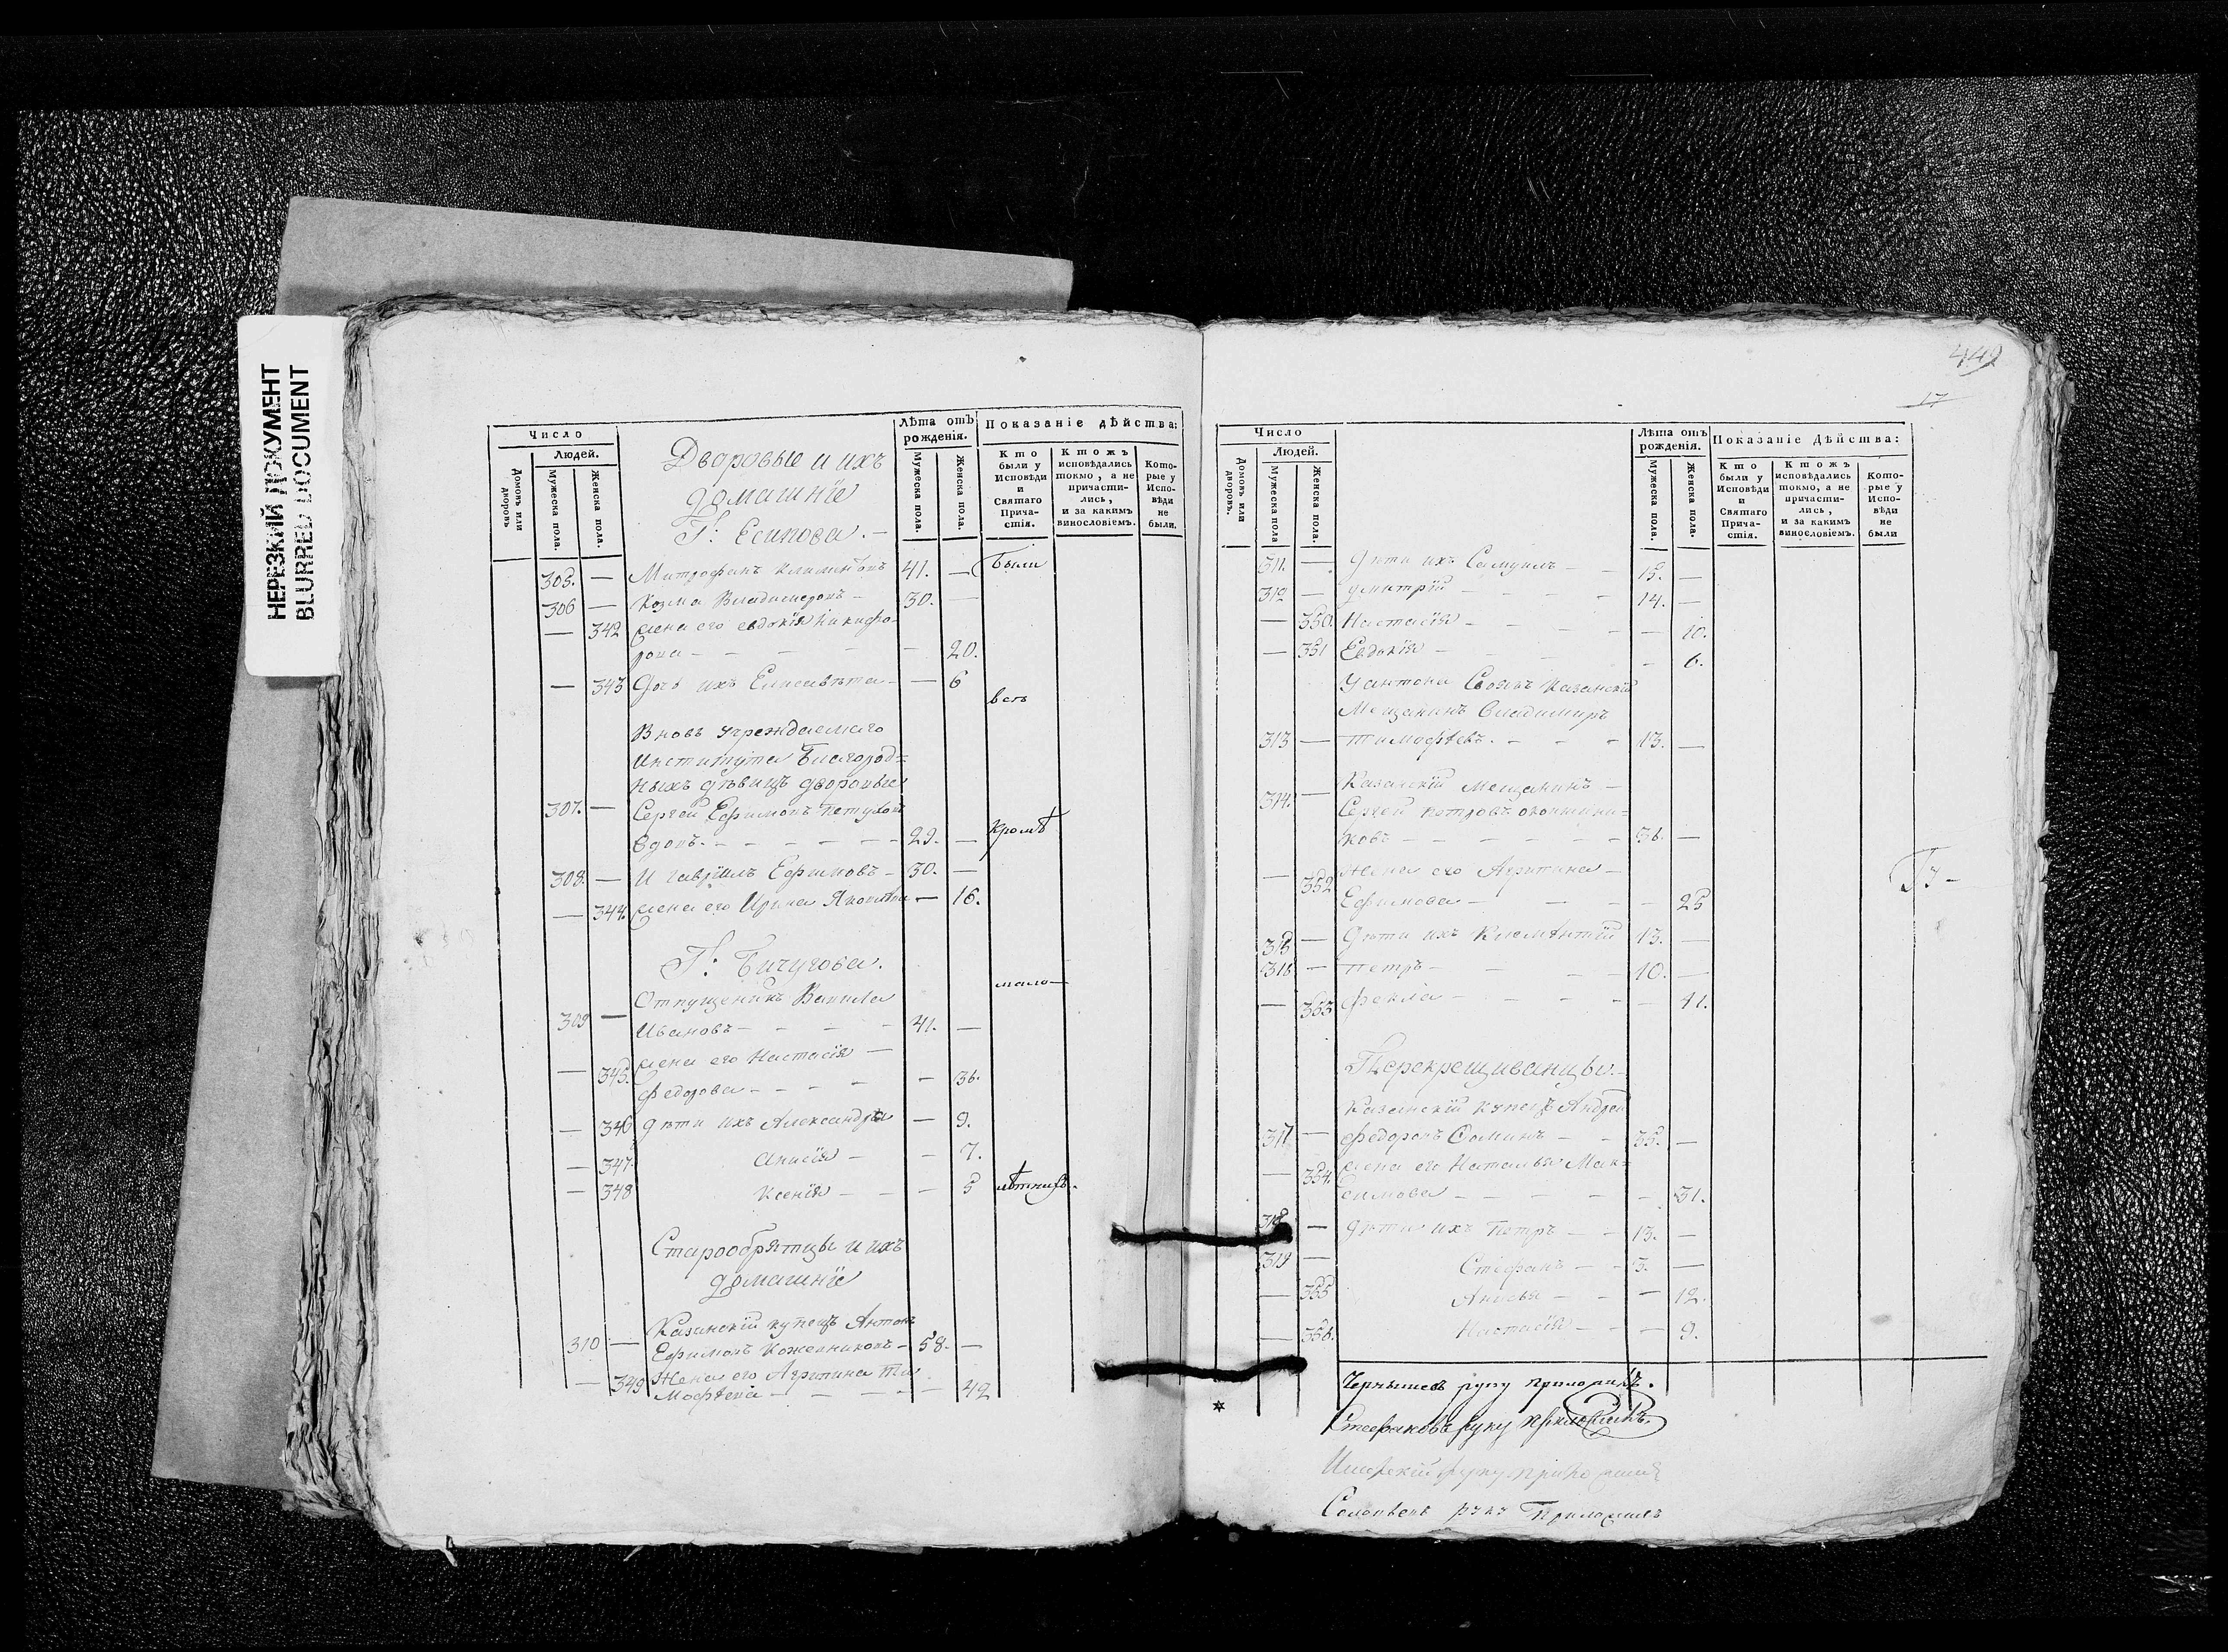 НЕРЕЗКИЙ ДОКУМЕНТ
BLURRED DOCUMENT
Число
Людей.
Домовъ или дворовъ
Мужеска пола.
Женска пола.
Дворовые и ихъ
домашнїе
Г: Есипова. –
Лѣта отъ рожденія.
Мужеска пола.
Женска пола.
Показаніе дѣйства:
Кто были у Исповѣди и Святаго Причастія.
Ктожъ исповѣдались токмо, а не причастились, и за какимъ винословіемъ.
Которые у Исповѣди не были.
305. — Митрофанъ Климентовъ 41. — Были
306 — Козма Владимеровъ – 30. —
— 342 жена его Евдокїя Никифо-
рова – – – – – 20.
— 343 Дочь ихъ Елисавѣта – — 6
всѣ
Вновь учреждаемаго
Института Благород=
ныхъ дѣвицъ дворовые
307. — Сергей Ефимовъ Петухов
вдовъ. – – – – – – 29. — кромѣ
308. — И Гаврїилъ Ефимовъ – 30. —
— 344. жена его Ирина Яковлева — 16.
Г: Бичугова.
мало—
Отпущеникъ Вавила
309 — Ивановъ – – – – 41. —
— 345. жена его Настасїя —
Федорова – – – – – 36.
— 346 дѣти ихъ Александра — 9.
— 347. Анисїя – – 7.
— 348 Ксенїя – – – 5 лѣтнихъ.
Старообрятцы и ихъ
домашнїе
310 — Казанскїй купецъ Антонъ
Ефимовъ Кожевниковъ – 58. —
— 349 Жена его Агрипина Ти
мофѣева – – – – – 42
449
17
Число
Людей.
Домовъ или дворовъ.
Мужеска пола
Женска пола.
Лѣта отъ рожденія.
Мужеска пола.
Женска пола.
Показаніе Дѣйства:
Кто были у Исповѣди и Святаго Причастія.
Ктожъ исповѣдались токмо, а не причастились, и за какимъ винословіемъ.
Которые у Исповѣди не были
311. — Дѣти ихъ Самуилъ – – 15. —
312 — Димитрїй – – – – 14. —
— 350. Настасїя – – – – — 10.
— 351 Евдокїя – – – – 6.
У Антона Своякъ Казанскїй
Мещанинъ Владимиръ
313 — Тимофѣевъ. – – – 13. —
314. — Казанскїй Мещанинъ –
Сергей Петровъ
ковъ – – – – – 36. —
— 352 Жена его Агрипина –
Ефимова – – – – 25
315 — Дѣти ихъ Климентїй 13. —
316 — Петръ – – – – 10. —
— 353 Фекла – – – – — 11.
Перекрещиванцы. –
Казанскїй купецъ Андрей
317. — Федоровъ Фоминъ – – 35. —
— 354. жена его Наталья Мак=
симова – – – – – 31.
318 — дѣти ихъ Петръ – – 13. —
319 — Стефанъ – – 3. —
— 355 Анисья – – – 12.
— 356. Настасїя – – — 9.
Чернышевъ руку приложилъ.
Стефановъ руку приложилъ.
руку приложилъ
Соловьевъ руку Приложилъ